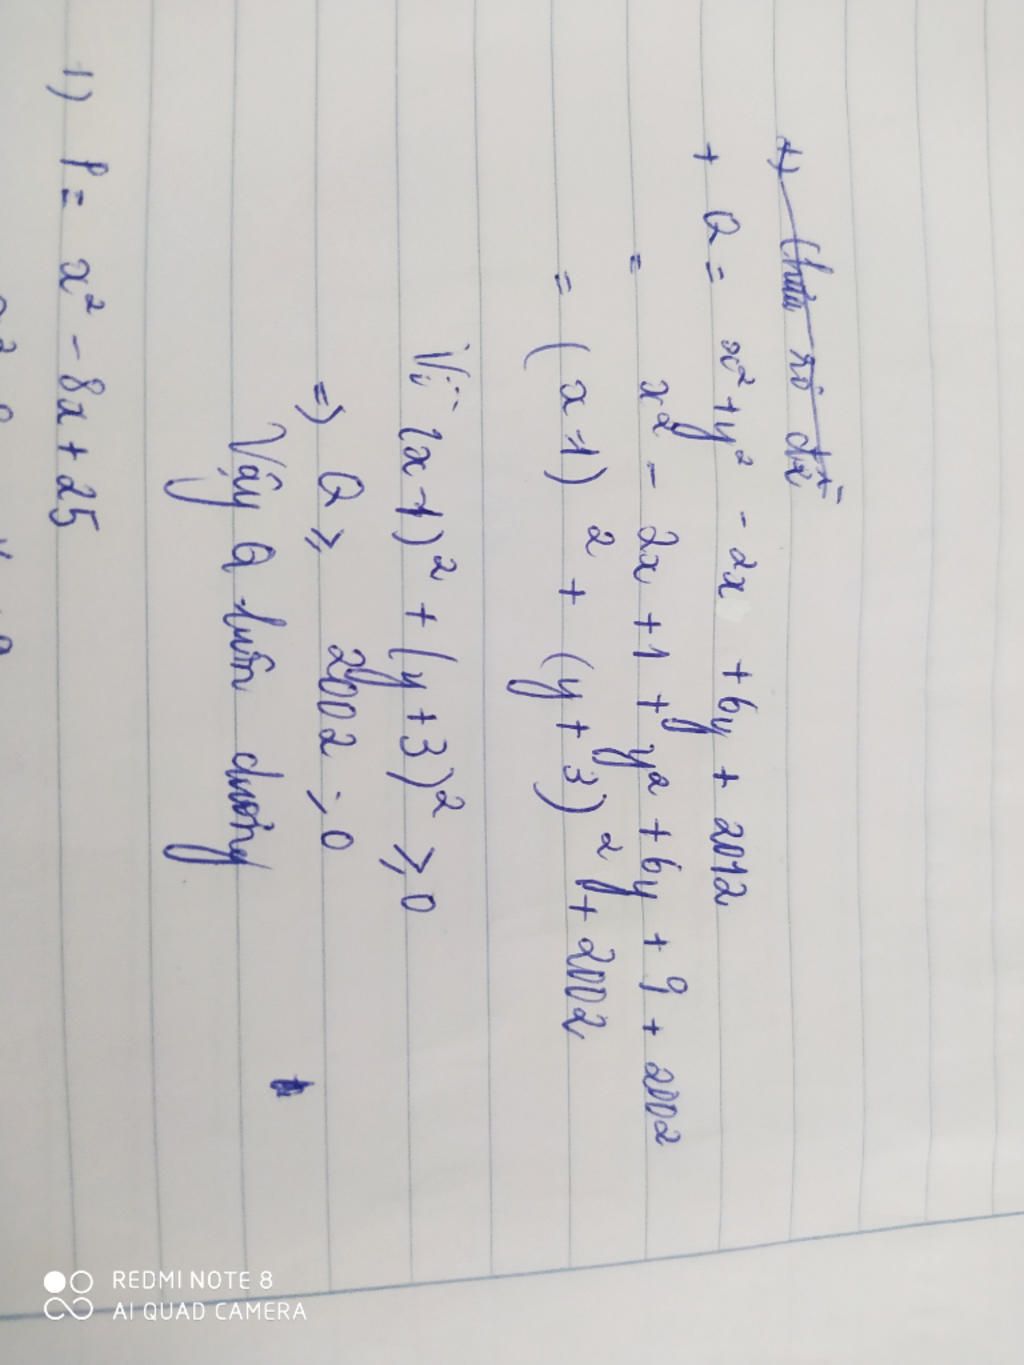 + Q = x² + y² - 2x + 6y + 2012
= x² - 2x + 1 + y² + 6y + 9 + 2002
= (x-1)² + (y+3)² + 2002
Vì (x-1)² + (y+3)² ≥ 0
=) Q ≥ 2002 > 0
Vậy Q luôn dương
1) P = x² - 8x + 25
REDMI NOTE 8
AI QUAD CAMERA